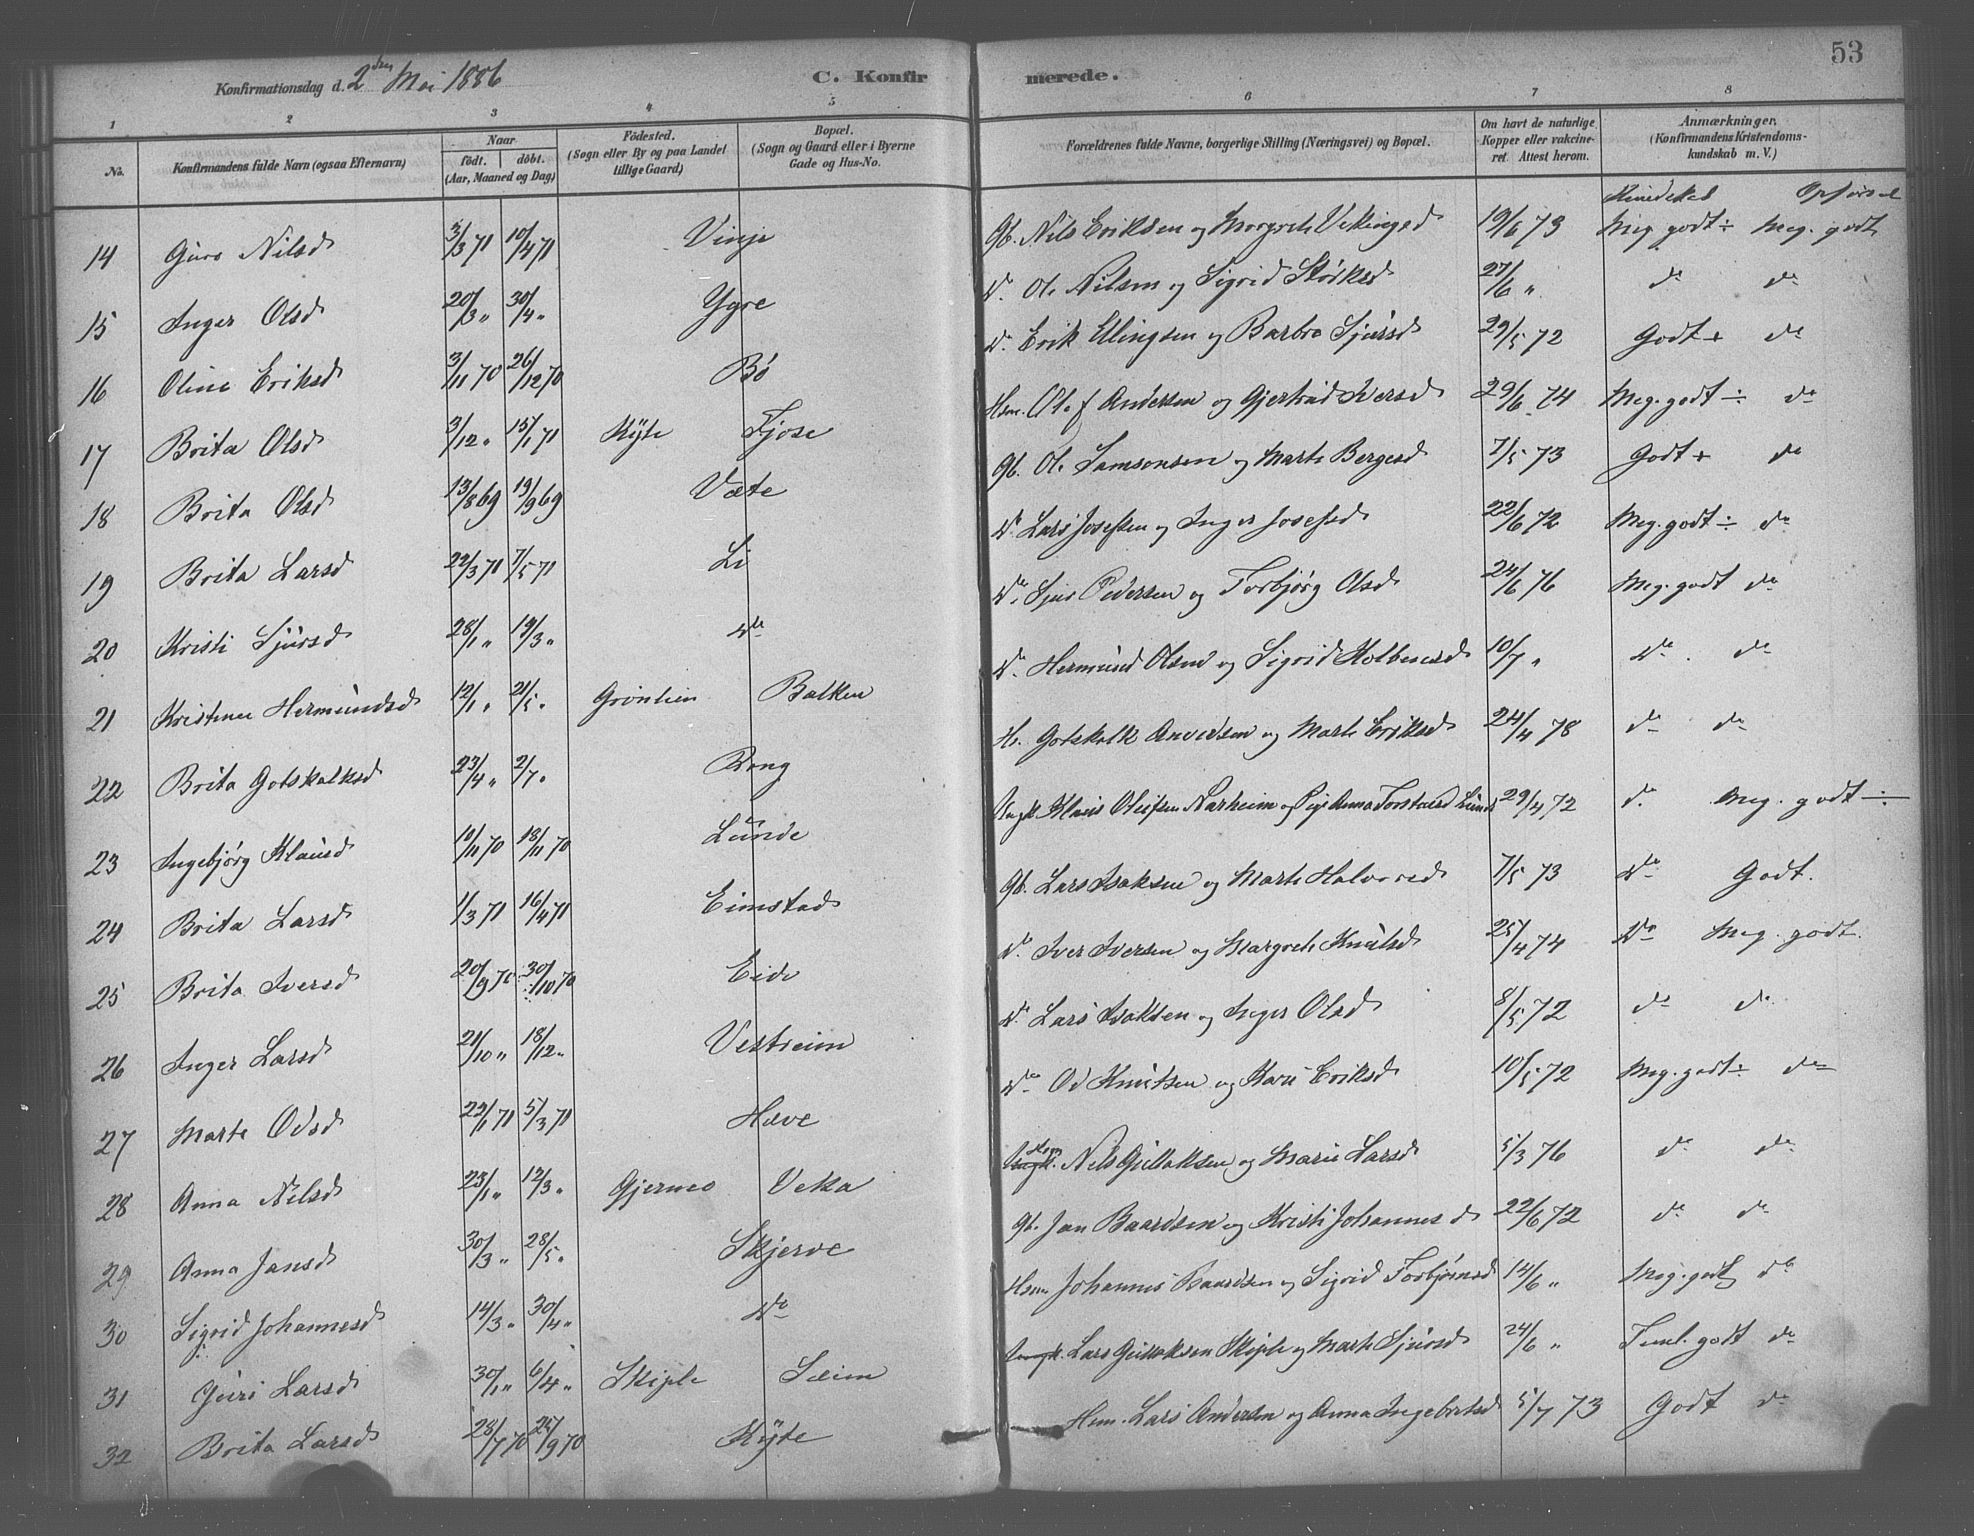 53
Konfirmationsdag d. 2den Mai 1886
C. Konfirmerede.
1 2 3 4 5 6 7 8
No. Konfirmandens fulde Navn (ogsaa Efternavn) Naar født. døbt. (Aar, Maaned og Dag) Fødested. (Sogn eller By og paa Landet tillige Gaard) Bopæl. (Sogn og Gaard eller i Byerne Gade og Hus-No. Forældrenes fulde Navne, borgerlige Stilling (Næringsvei) og Bopæl. Om havt de naturlige Kopper eller vakcineret. Attest herom. Anmærkninger. (Konfirmandens Kristendomskundskab m. V.)
Kundskab Opførsel
14 Guro Nilsd 3/3 71 10/4 71 Vinje Gb. Nils Eriksen og Margrete Vikingsd 19/6 73 Meg. godt ÷ Meg. godt
15 Inger Olsd 20/3 " 30/4 " Ygre do Ole Nilsen og Sigrid Størksd 27/6 " do do
16 Oline Eriksd 3/11 70 26/12 70 Bø do Erik Ellingsen og Barbro Sjursd 29/5 72 Godt + do
17 Brita Olsd 3/12 " 15/1 71 Kyte Fjose Hsm. Ole Andersen og Gjertrud Iversd 29/6 74 Meg. godt ÷ do
18 Brita Olsd 13/8 69 19/9 69 Væte Gb. Ole Samsonsen og Marte Bergesd 7/5 73 Godt + do
19 Brita Larsd 22/3 71 7/5 71 Li do Lars Josefsen og Inger Josefsd 22/6 72 Meg. godt ÷ do
20 Kristi Sjursd 28/1 " 19/3 " do do Sjur Pedersen og Torbjørg Olsd 24/6 76 Meg. godt do
21 Kristine Hermundsd 12/1 " 21/5 " Grönlien Balken do Hermund Olsen og Sigrid Kolbensd 10/7 " do do
22 Brita Gotskalksd 23/4 " 2/7 " Rong H. Gotskalk Anvedsen og Marte Eriksd 24/4 78 do do
23 Ingebjørg Klausd 10/11 70 18/11 70 Lunde Ungk. Klaus Oleifsen Narheim og Pige Anna Torstensd Lunde 29/4 72 do Meg. godt ÷
24 Brita Larsd 1/3 71 16/4 71 Eimstad Gb. Lars Isaksen og Marte Halvorsd 7/5 73 do Godt.
25 Brita Iversd 20/9 70 30/10 70 Eide do Iver Iversen og Margrete Knutsd 25/4 74 do Meg. godt.
26 Inger Larsd 21/10 " 18/12 " Vestreim do Lars Isaksen og Inger Olsd 8/5 72 do do
27 Marte Odsd 22/1 71 5/3 71 Hæve do Od Knutsen og Kari Eriksd 10/5 72 Meg. godt ÷ do
28 Anna Nilsd 23/1 " 12/3 " Gjermo Veka Hsm. Nils Gulloksen og Mari Larsd 5/3 76 do do
29 Anna Jansd 30/3 " 28/5 " Skjerve Gb. Jan Baardsen og Kristi Johannesd 22/6 72 do do
30 Sigrid Johannesd 14/3 " 30/4 " do Hsm. Johannes Baardsen og Sigrid Torbjørnsd 14/6 " Meg. godt do
31 Guri Larsd 30/1 " 6/4 " Skiple Sæim Ungk. Lars Gulloksen Skiple og Marte Sjursd 24/6 " Teml. godt do
32 Brita Larsd 28/7 70 25/9 70 Kyte Hsm. Lars Andersen og Anna Ingebretsd 5/7 73 Godt do